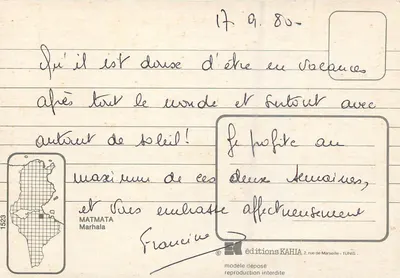 17.9.80-
Qu'il est doux d'être en vacances
après tout le monde et surtout avec
autant de soleil! Je profite au
maximum de ces deux semaines,
et vous embrasse affectueusement
Francine
1523
MATMATA
Marhala
éditions KAHIA, 2, rue de Marseille - TUNIS
modèle déposé
reproduction interdite